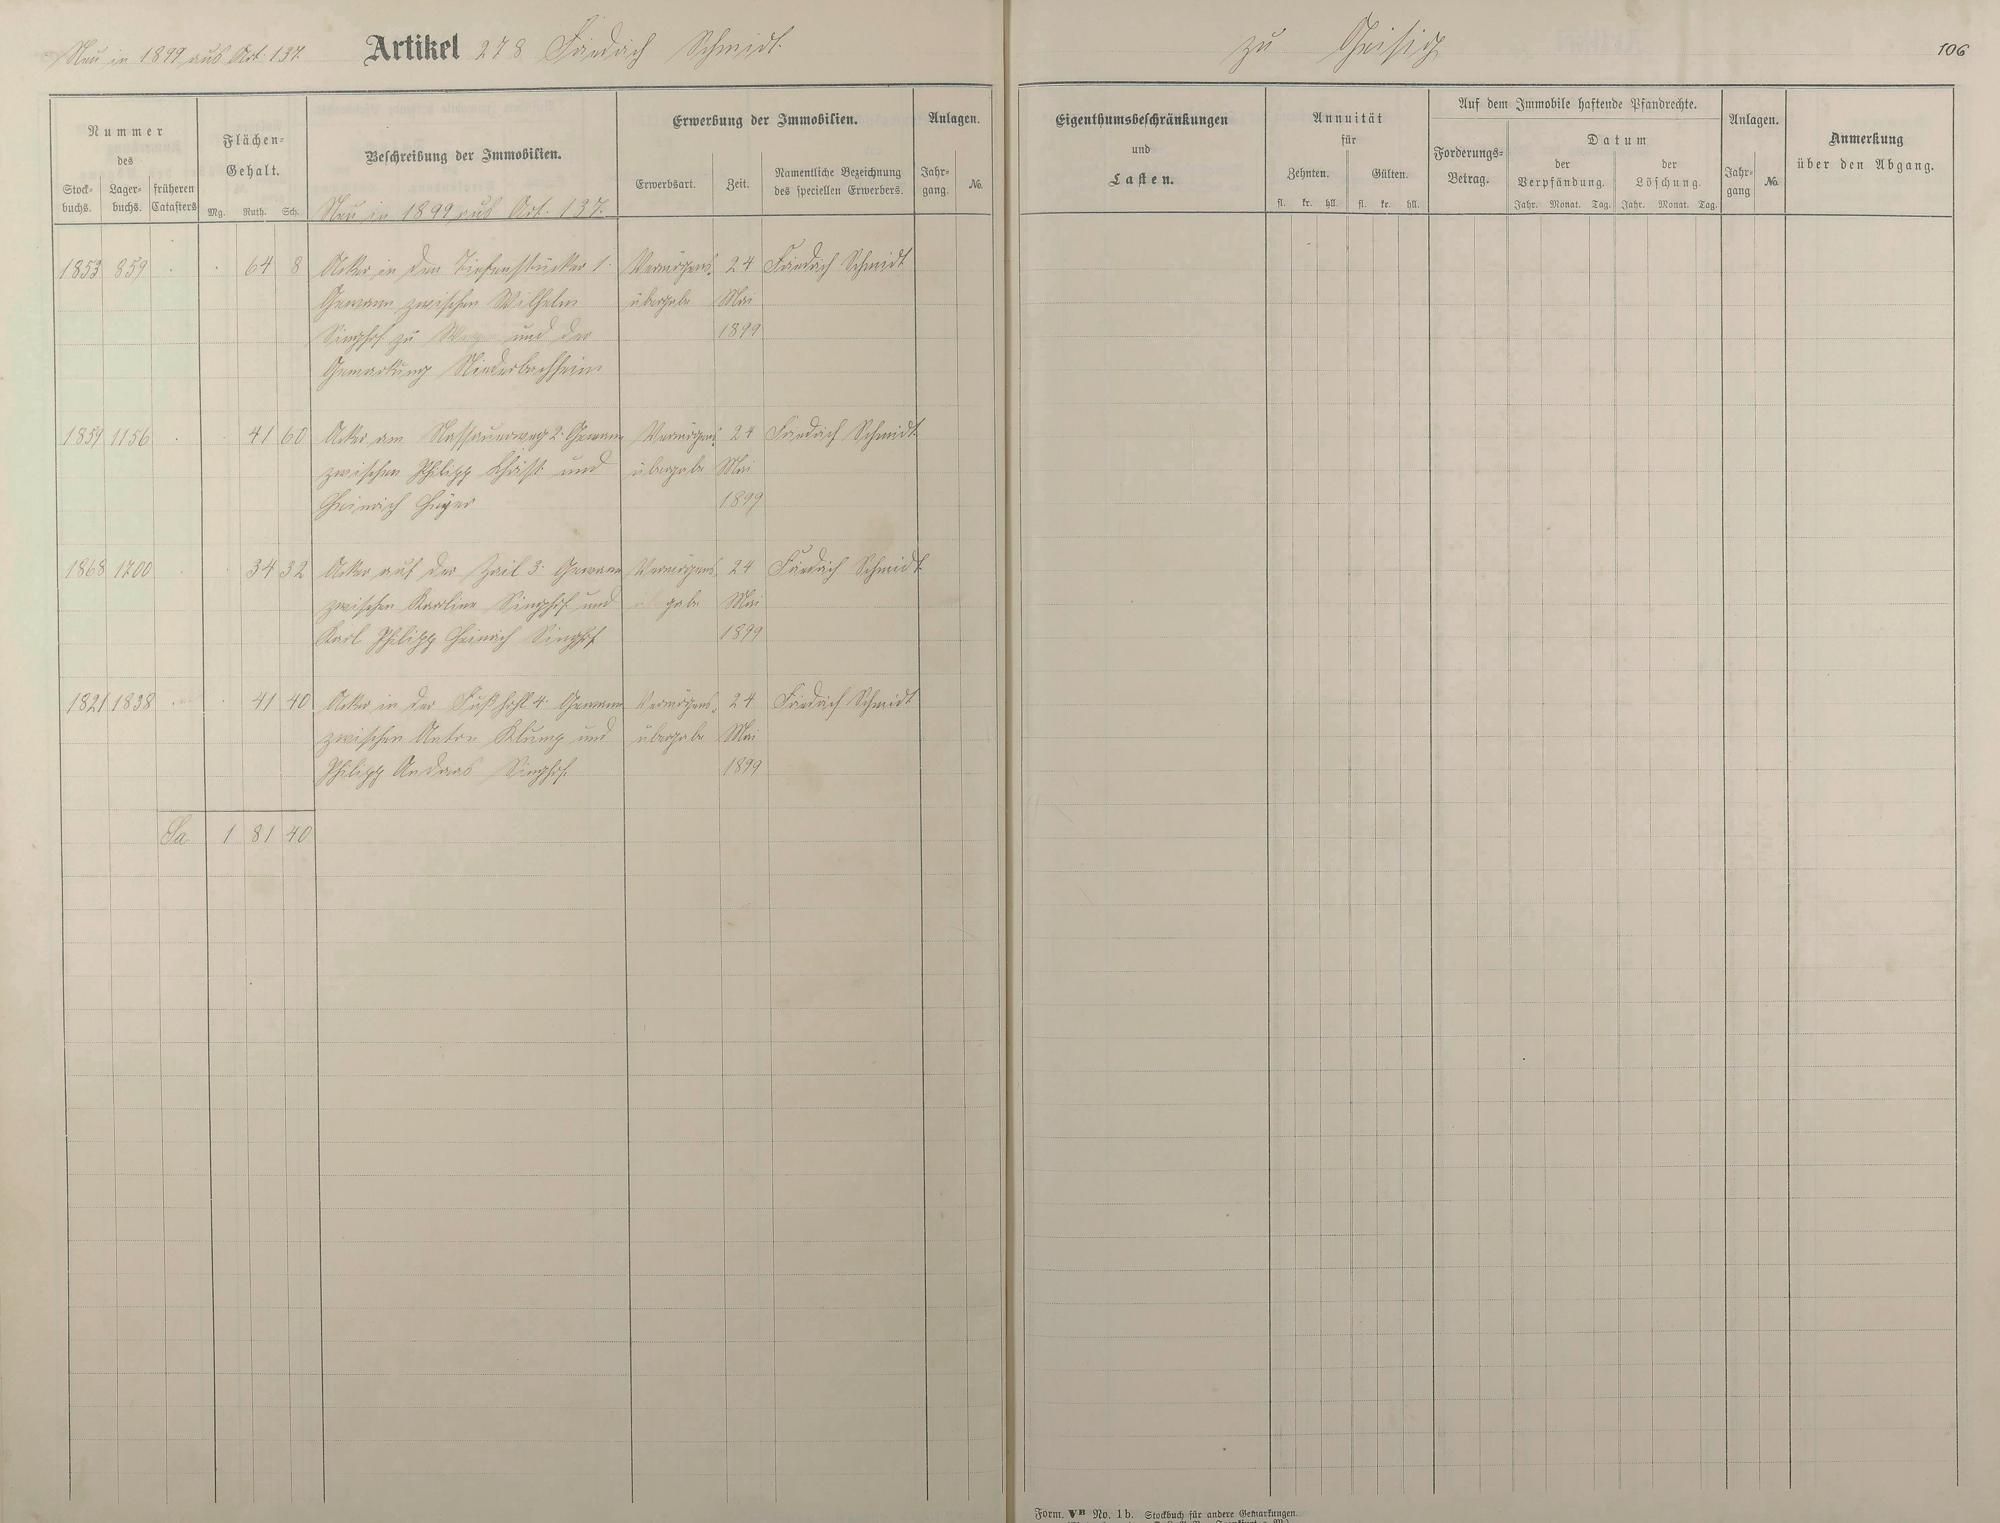 Neu in 1899 aus Art. 137. Artikel 278 Friedrich Schmidt. zu Geisig 106
Nummer
des
Stock-
buchs.
Lager-
buchs.
früheren
Catasters
Flächen-
Gehalt.
Mg. Ruth. Sch.
Beschreibung der Immobilien.
Neu in 1899 aus Art. 137.
Erwerbung der Immobilien.
Erwerbsart.
Zeit.
Namentliche Bezeichnung
des speciellen Erwerbers.
Anlagen.
Jahr-
gang.
No.
Eigenthumsbeschränkungen
und
Lasten.
Annuität
für
Zehnten. Gülten.
fl. kr. hll. fl. kr. hll.
Auf dem Immobile haftende Pfandrechte.
Forderungs-
Betrag.
Datum
der
Verpfändung.
der
Löschung.
Jahr. Monat. Tag. Jahr. Monat. Tag.
Anlagen.
Jahr-
gang
No.
Anmerkung
über den Abgang.
1853 859 . . 64 8 Acker in den Tiefenstücker 1. Vermögens- 24 Friedrich Schmidt
Gewann zwischen Wilhelm übergabe Mai
Singhof zu und der 1899
Gemarkung Niederbachheim
1859 1156 . . 41 60 Acker am Nassauerweg 2. Gewann Vermögens- 24 Friedrich Schmidt
zwischen Philipp und übergabe Mai
Heinrich 1899
1868 1700 . . 34 32 Acker auf der 3. Gewann Vermögens- 24 Friedrich Schmidt
zwischen Karoline Singhof und übergabe Mai
Karl Philipp Heinrich Singhof 1899
1821 1838 . . 41 40 Acker in der Fußhohl 4. Gewann Vermögens- 24 Friedrich Schmidt
zwischen Anton Klump und übergabe Mai
Philipp Andreas Singhof. 1899
Sa 1 81 40
Form. VB No. 1b. Stockbuch für andere Gemarkungen.